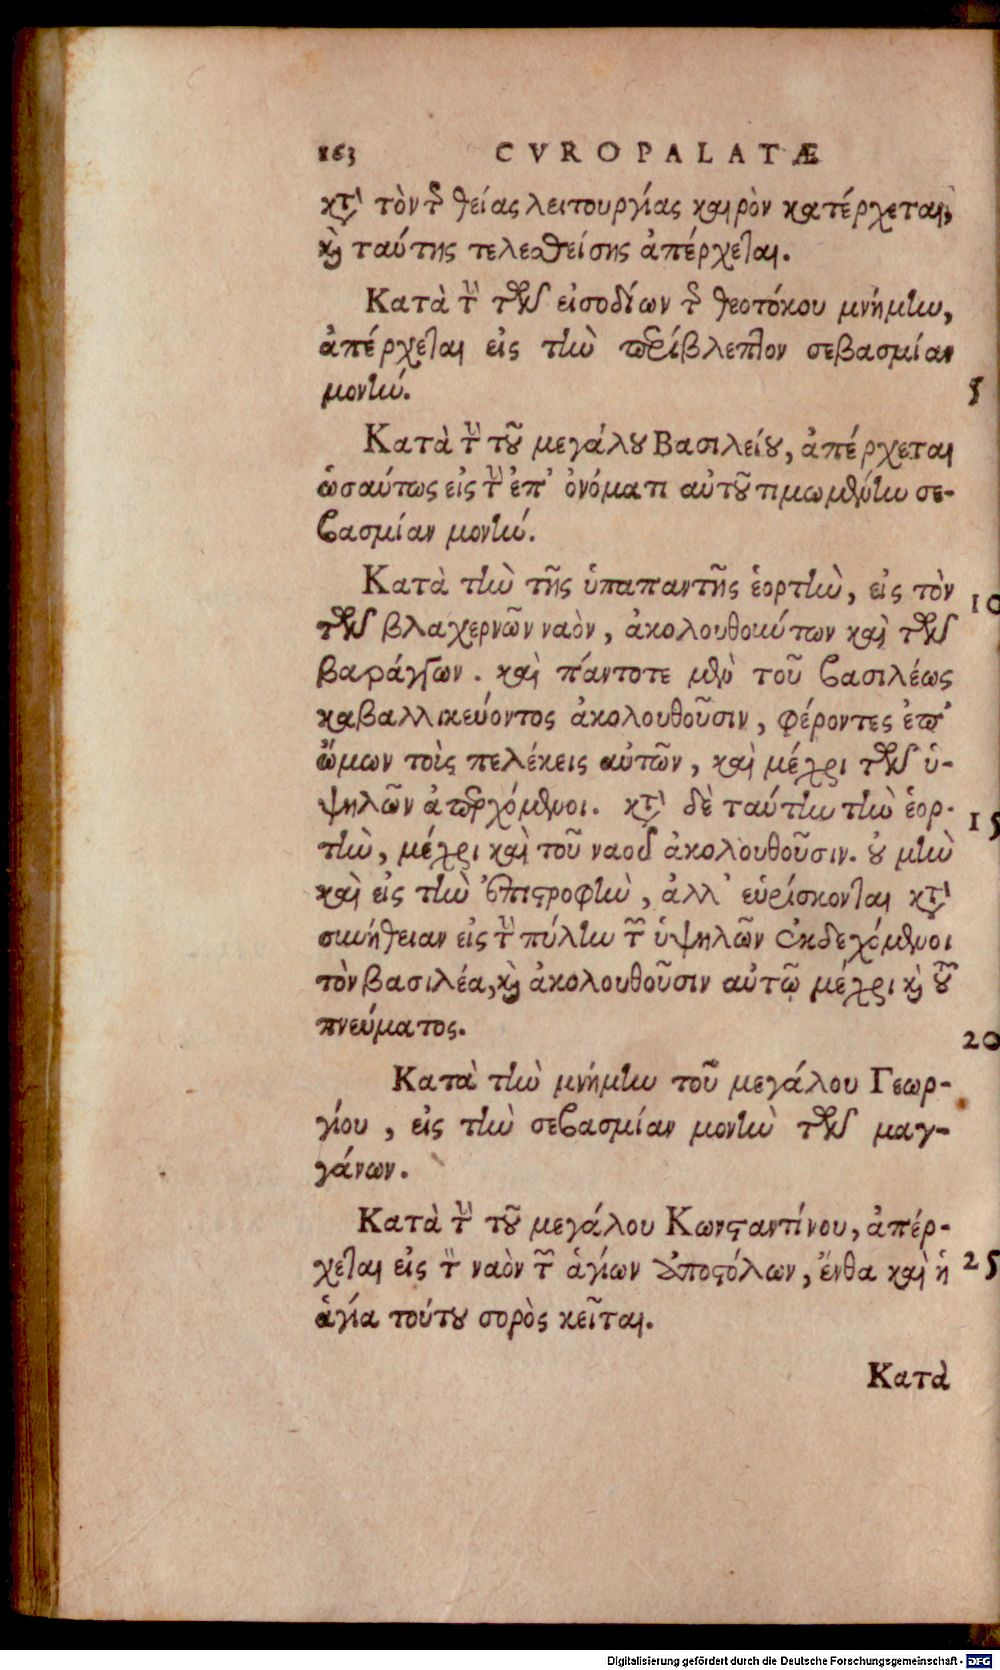 163 CVROPALATÆ
κτ' τὸν τῆς θείας λειτουργίας καιρὸν κατέρχεται,
καὶ ταύτης τελεσθείσης ἀπέρχεται.
Κατὰ τὴν τῶν εἰσοδίων τῆς θεοτόκου μνήμην,
ἀπέρχεται εἰς τὴν περίβλεπτον σεβασμίαν
μονήν.
5
Κατὰ τὴν τοῦ μεγάλου Βασιλείου, ἀπέρχεται
ὡσαύτως εἰς τὴν ἐπ' ὀνόματι αὐτοῦ τιμωμένην σε-
βασμίαν μονήν.
Κατὰ τὴν τῆς ὑπαπαντῆς ἑορτὴν, εἰς τὸν
10
τῶν βλαχερνῶν ναὸν, ἀκολουθούντων καὶ τῶν
βαράγγων. καὶ πάντοτε μὲν τοῦ βασιλέως
καβαλλικεύοντος ἀκολουθοῦσιν, φέροντες ἐπ'
ὤμων τοὶς πελέκεις αὐτῶν, καὶ μέχρι τῶν ὑ-
ψηλῶν ἀπερχόμενοι. κτ' δὲ ταύτην τὴν ἑορ-
15
τὴν, μέχρι καὶ τοῦ ναοῦ ἀκολουθοῦσιν. οὐ μὴν
καὶ εἰς τὴν ἐπιστροφὴν, ἀλλ' εὑρίσκονται κτ'
συνήθειαν εἰς τὴν πύλην τῶν ὑψηλῶν ἐκδεχόμενοι
τὸν βασιλέα, καὶ ἀκολουθοῦσιν αὐτῷ μέχρι καὶ τοῦ
πνεύματος.
20
Κατὰ τὴν μνήμην τοῦ μεγάλου Γεωρ-
γίου, εἰς τὴν σεβασμίαν μονὴν τῶν μαγ-
γάνων.
Κατὰ τὴν τοῦ μεγάλου Κωνσταντίνου, ἀπέρ-
χεται εἰς τὸν ναὸν τῶν ἁγίων ἀποστόλων, ἔνθα καὶ ἡ
25
ἁγία τούτου σορὸς κεῖται.
Κατὰ
Digitalisierung gefördert durch die Deutsche Forschungsgemeinschaft - DFG